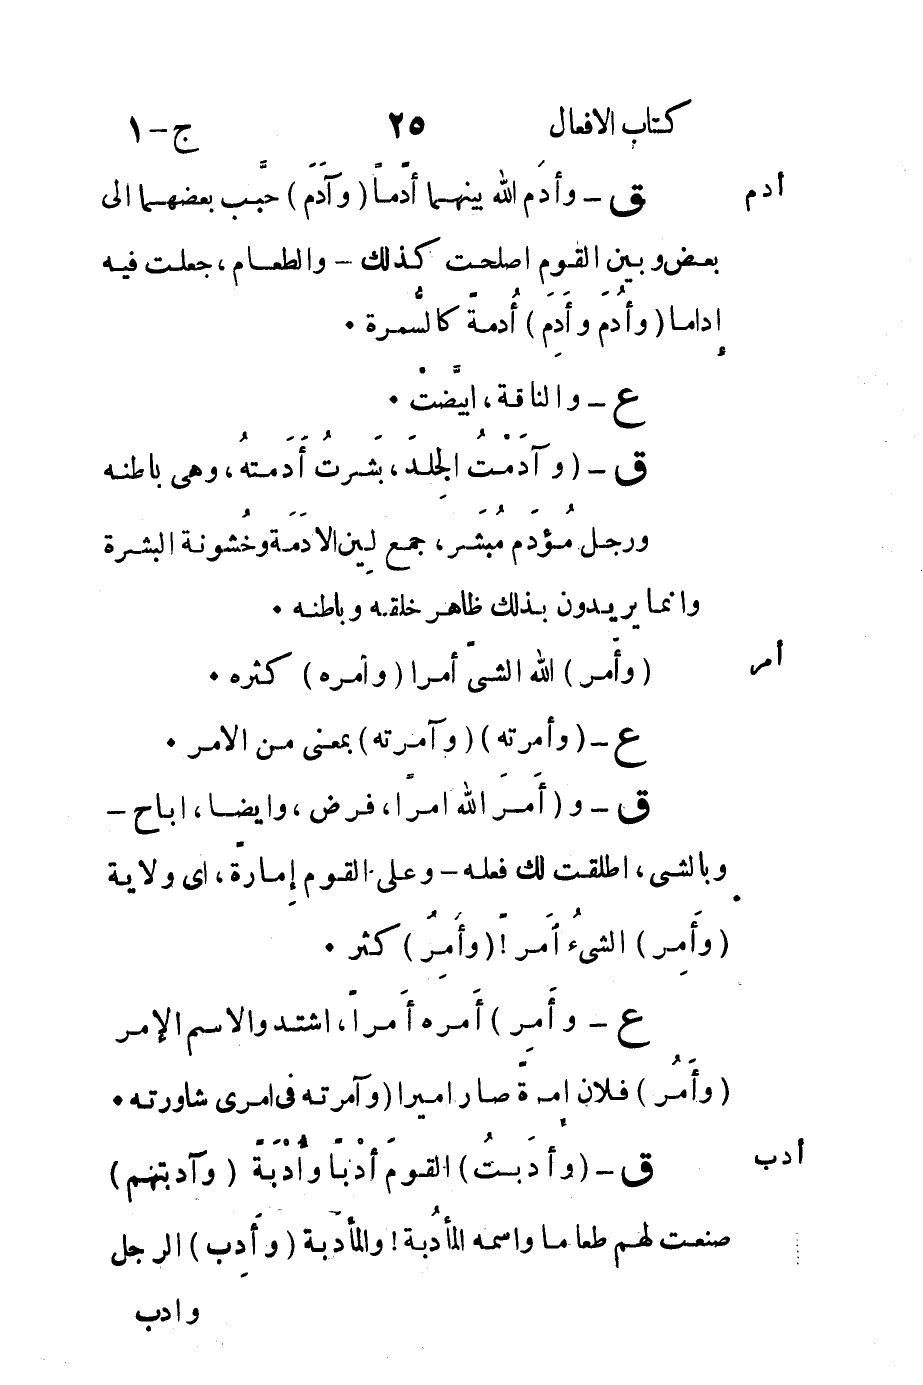 كتاب الافعال ٢٥ ج-١
أدم ق - وأدَم الله بينهما أدْماً (وآدَم) حبَّب بعضهما الى
بعض وبين القوم اصلحت كذلك - والطعام، جعلت فيه
إداما (وأدُمَ وأَدِمَ) أُدمةً كالسُّمرة •
ع - والناقة، ابيَّضتْ •
ق - (وآدَمْتُ الجِلدَ، بَشرتُ أَدَمتهُ، وهى باطنه
ورجل مُؤدَم مُبْشَر، جمع لِين الأدَمَة وخُشونة البشرة
وانما يريدون بذلك ظاهر خلقه وباطنه •
أمر (وأمر) الله الشىّ أمرا (وأمره) كثره •
ع - (وأمرته) (وآمرته) بمعنى من الامر •
ق - و (أَمَرَ الله امراً، فرض، وايضا، اباح -
وبالشى، اطلقت لك فعله - وعلى القوم إِمارةً، اى ولاية
(وأَمِر) الشىءُ أمر! (وأَمِرُ) كثر •
ع - وأَمِر) أَمره أَمراً، اشتد والاسم الإمر
(وأَمُر) فلان إمرةً صار اميرا (وآمرته فى امرى شاورته •
أدب ق - (وأدَبتُ) القومَ أدْباً وأُدْبَةً (وآدبتهم)
صنعت لهم طعاما واسمه المأدُبة! والمأدَبة (وأَدِب) الرجل
وادب